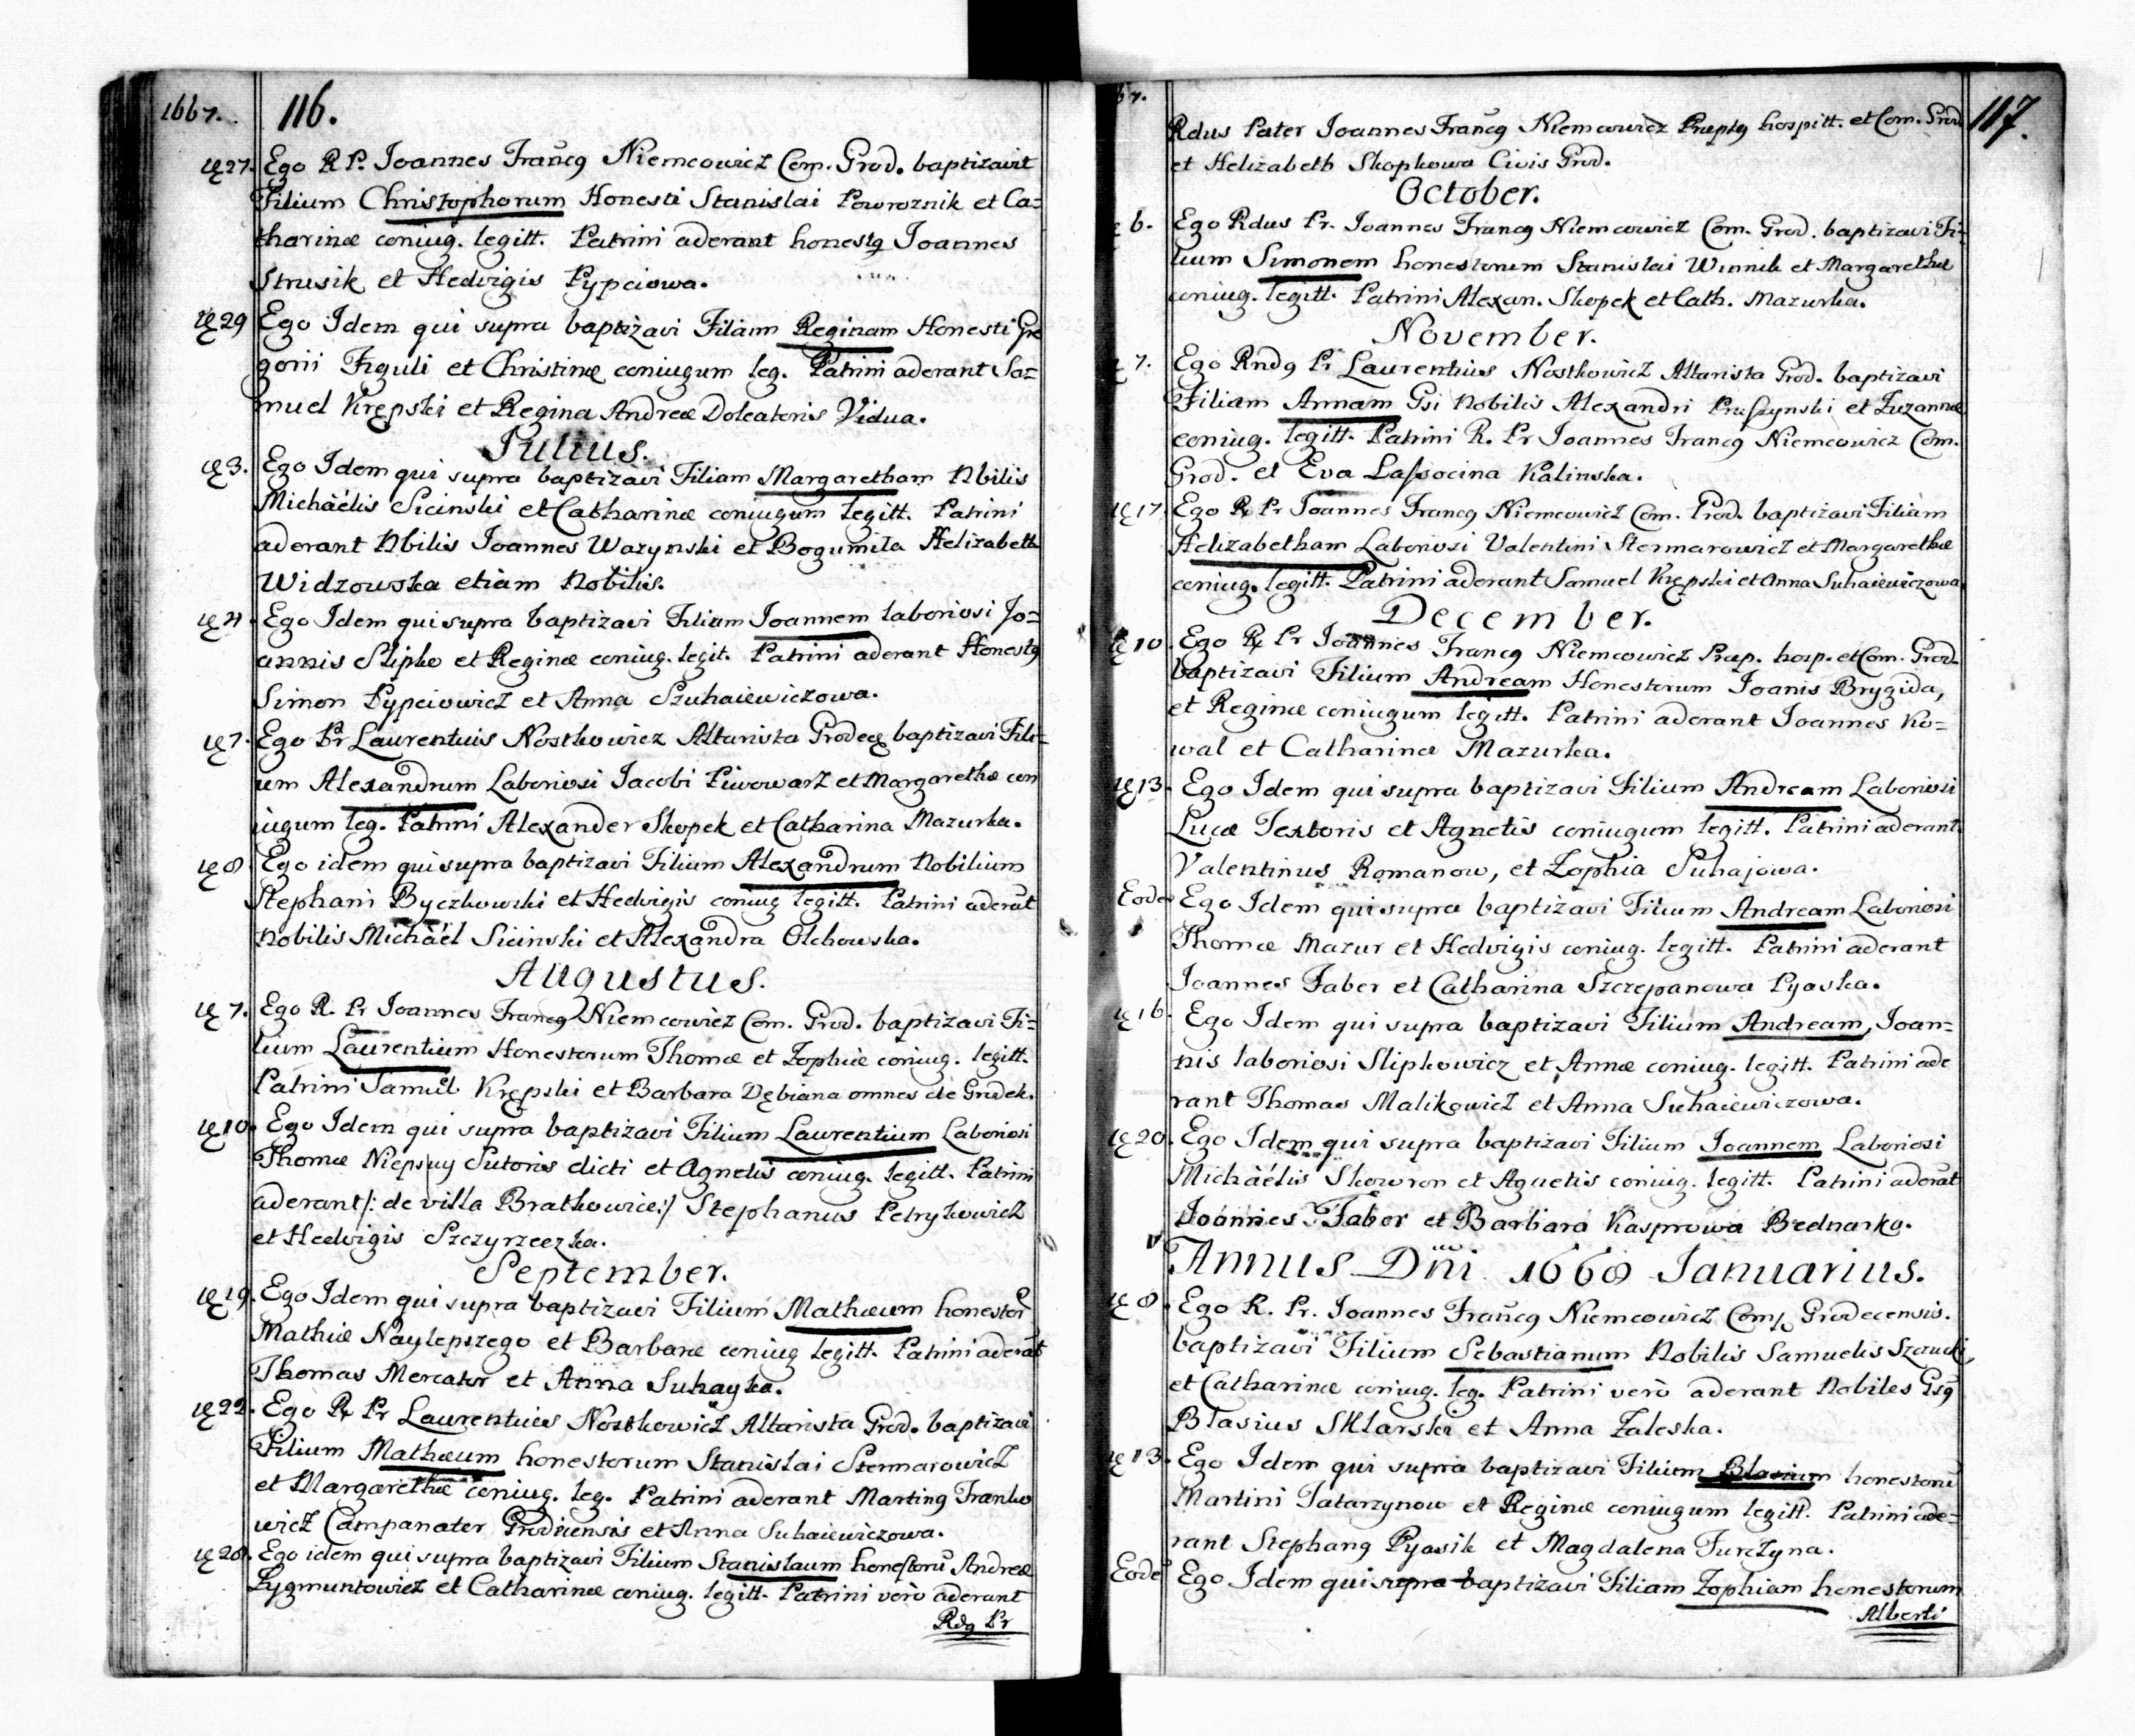 1667.
116.
27. Ego R P. Joannes Francq Niemcowicz Com. Grod. baptizavit
Filium Christophorum Honesti Stanislai Powroznik et Ca=
tharinæ coniug. legitt. Patrini aderant honestq Joannes
Strusik et Hedvigis Pypciowa.
29 Ego Idem qui supra baptizavi Filiam Reginam Honesti Gre
gorii Figuli et Christinæ coniugum leg. Patrini aderant Sa=
muel Krępski et Regina Andreæ Doleatoris Vidua.
Julius.
3. Ego Idem qui supra baptizavi Filiam Margaretham Nbilis
Michäélis Sicinski et Catharinæ coniugum legitt. Patrini
aderant Nbilis Joannes Wazynski et Bogumila Helizabeth
Widzowska etiam Nobilis.
4. Ego Idem qui supra baptizavi Filium Joannem laboriosi Jo=
annis Slipko et Reginæ coniug. legit. Patrini aderant Honestq
Simon Pypciowicz et Anna Szuhaiewiczowa.
7. Ego Pr Laurentuis Nostkowicz Altarista Grodecę baptizavi Fili=
um Alexandrum Laboriosi Jacobi Piwowarz et Margarethæ con
iugum leg. Patrini Alexander Skopek et Catharina Mazurka.
8. Ego idem qui supra baptizavi Filium Alexandrum Nobilium
Stephani Byczkowski et Hedvigis coniug legitt. Patrini aderāt
Nobilis Michäél Sicinski et Alexandra Olchowska.
Augustus.
7. Ego R. Pr Joannes Francq Niemcowicz Com. Grod. baptizavi Fi=
lium Laurentium Honestorum Thomæ et Zophiæ coniug. legitt.
Patrini Samuel Krępski et Barbara Dębiana omnes de Grodek.
10. Ego Idem qui supra baptizavi Filium Laurentium Laboriosi
Thomæ Sutoris dicti et Agnetis coniug. legitt. Patrini
aderant /: de villa Bratkowice :/ Stephanus Petrykowicz
et Hedvigis Szczyrzeczka.
September.
19. Ego Idem qui supra baptizavi Filium Mathæum honestor
Mathiæ Naylepszego et Barbaræ coniug legitt. Patrini aderāt
Thomas Mercator et Anna Suhayka.
22. Ego R Pr Laurentius Nostkowicz Altarista Grod. baptizavi
Filium Mathæum honestorum Stanislai Stermarowicz
et Margarethæ coniug. leg. Patrini aderant Martinq Franko
wicz Campanator Grodicensis et Anna Suhaiewiczowa.
28. Ego idem qui supra baptizavi Filium Stanislaum honestorū Andreæ
Zygmuntowicz et Catharinæ coniug. legitt. Patrini verò aderant
Rdq Pr
67.
117.
Rdus Pater Joannes Francq Niemcowicz Præptq hospitt. et Com. Grod
et Helizabeth Skopkowa Civis Grod.
October.
6. Ego Rdus Pr. Joannes Francq Niemcowicz Com. Grod. baptizavi Fi=
lium Simonem honestorum Stanislai Winnik et Margarethæ
coniug. legitt. Patrini Alexan. Skopek et Cath. Mazurka.
November.
7. Ego Rndq Pr Laurentius Nostkowicz Altarista Grod. baptizavi
Filiam Annam Gsi Nobilis Alexandri Pruszynski et Zuzannæ
coniug. legitt. Patrini R. Pr Joannes Francq Niemcowicz Com.
Grod. et Eva Lassocina Kalinska.
17. Ego R Pr Joannes Francq Niemcowicz Com. Grod. baptizavi Filiam
Helizabetham Laboriosi Valentini Stermarowicz et Margarethæ
coniug. legitt. Patrini aderant Samuel Krępski et Anna Suhaiewiczowa.
December.
10. Ego R Pr Joannes Francq Niemcowicz Præp. hosp. et Com. Grod.
baptizavi Filium Andream Honestorum Joanis Brygida,
et Reginæ coniugum legitt. Patrini aderant Joannes Ko=
wal et Catharina Mazurka.
13. Ego Idem qui supra baptizavi Filium Andream Laboriosi
Lucæ Textoris et Agnetis coniugum legitt. Patrini aderant
Valentinus Romanow, et Zophia Suhajowa.
Eodem Ego Idem qui supra baptizavi Filium Andream Laboriosi
Thomæ Mazur et Hedvigis coniug. legitt. Patrini aderant
Joannes Faber et Catharina Szczepanowa Pyaska.
16. Ego Idem qui supra baptizavi Filium Andream, Joan=
nis laboriosi Slipkowicz et Annæ coniug. legitt. Patrini ade
rant Thomas Malikowicz et Anna Suhaiewiczowa.
20. Ego Idem qui supra baptizavi Filium Joannem Laboriosi
Michäélis Skowron et Agnetis coniug. legitt. Patrini aderāt
Joannes Faber et Barbara Kasprowa Bednarka.
Annus Dni 1668 Januarius.
8. Ego R. Pr. Joannes Francq Niemcowicz Comp Grodecensis.
baptizavi Filium Sebastianum Nobilis Samuelis
et Catharinæ coniug. leg. Patrini verò aderant Nobiles Gsq
Blasius Sklarski et Anna Zaleska.
13. Ego Idem qui supra baptizavi Filium Blasium honestorū
Martini Tatarzynow et Reginæ coniugum legitt. Patrini ade=
rant Stephanq Pyasik et Magdalena Furczyna.
Eodē Ego Idem qui supra baptizavi Filiam Zophiam honestorum
Alberti